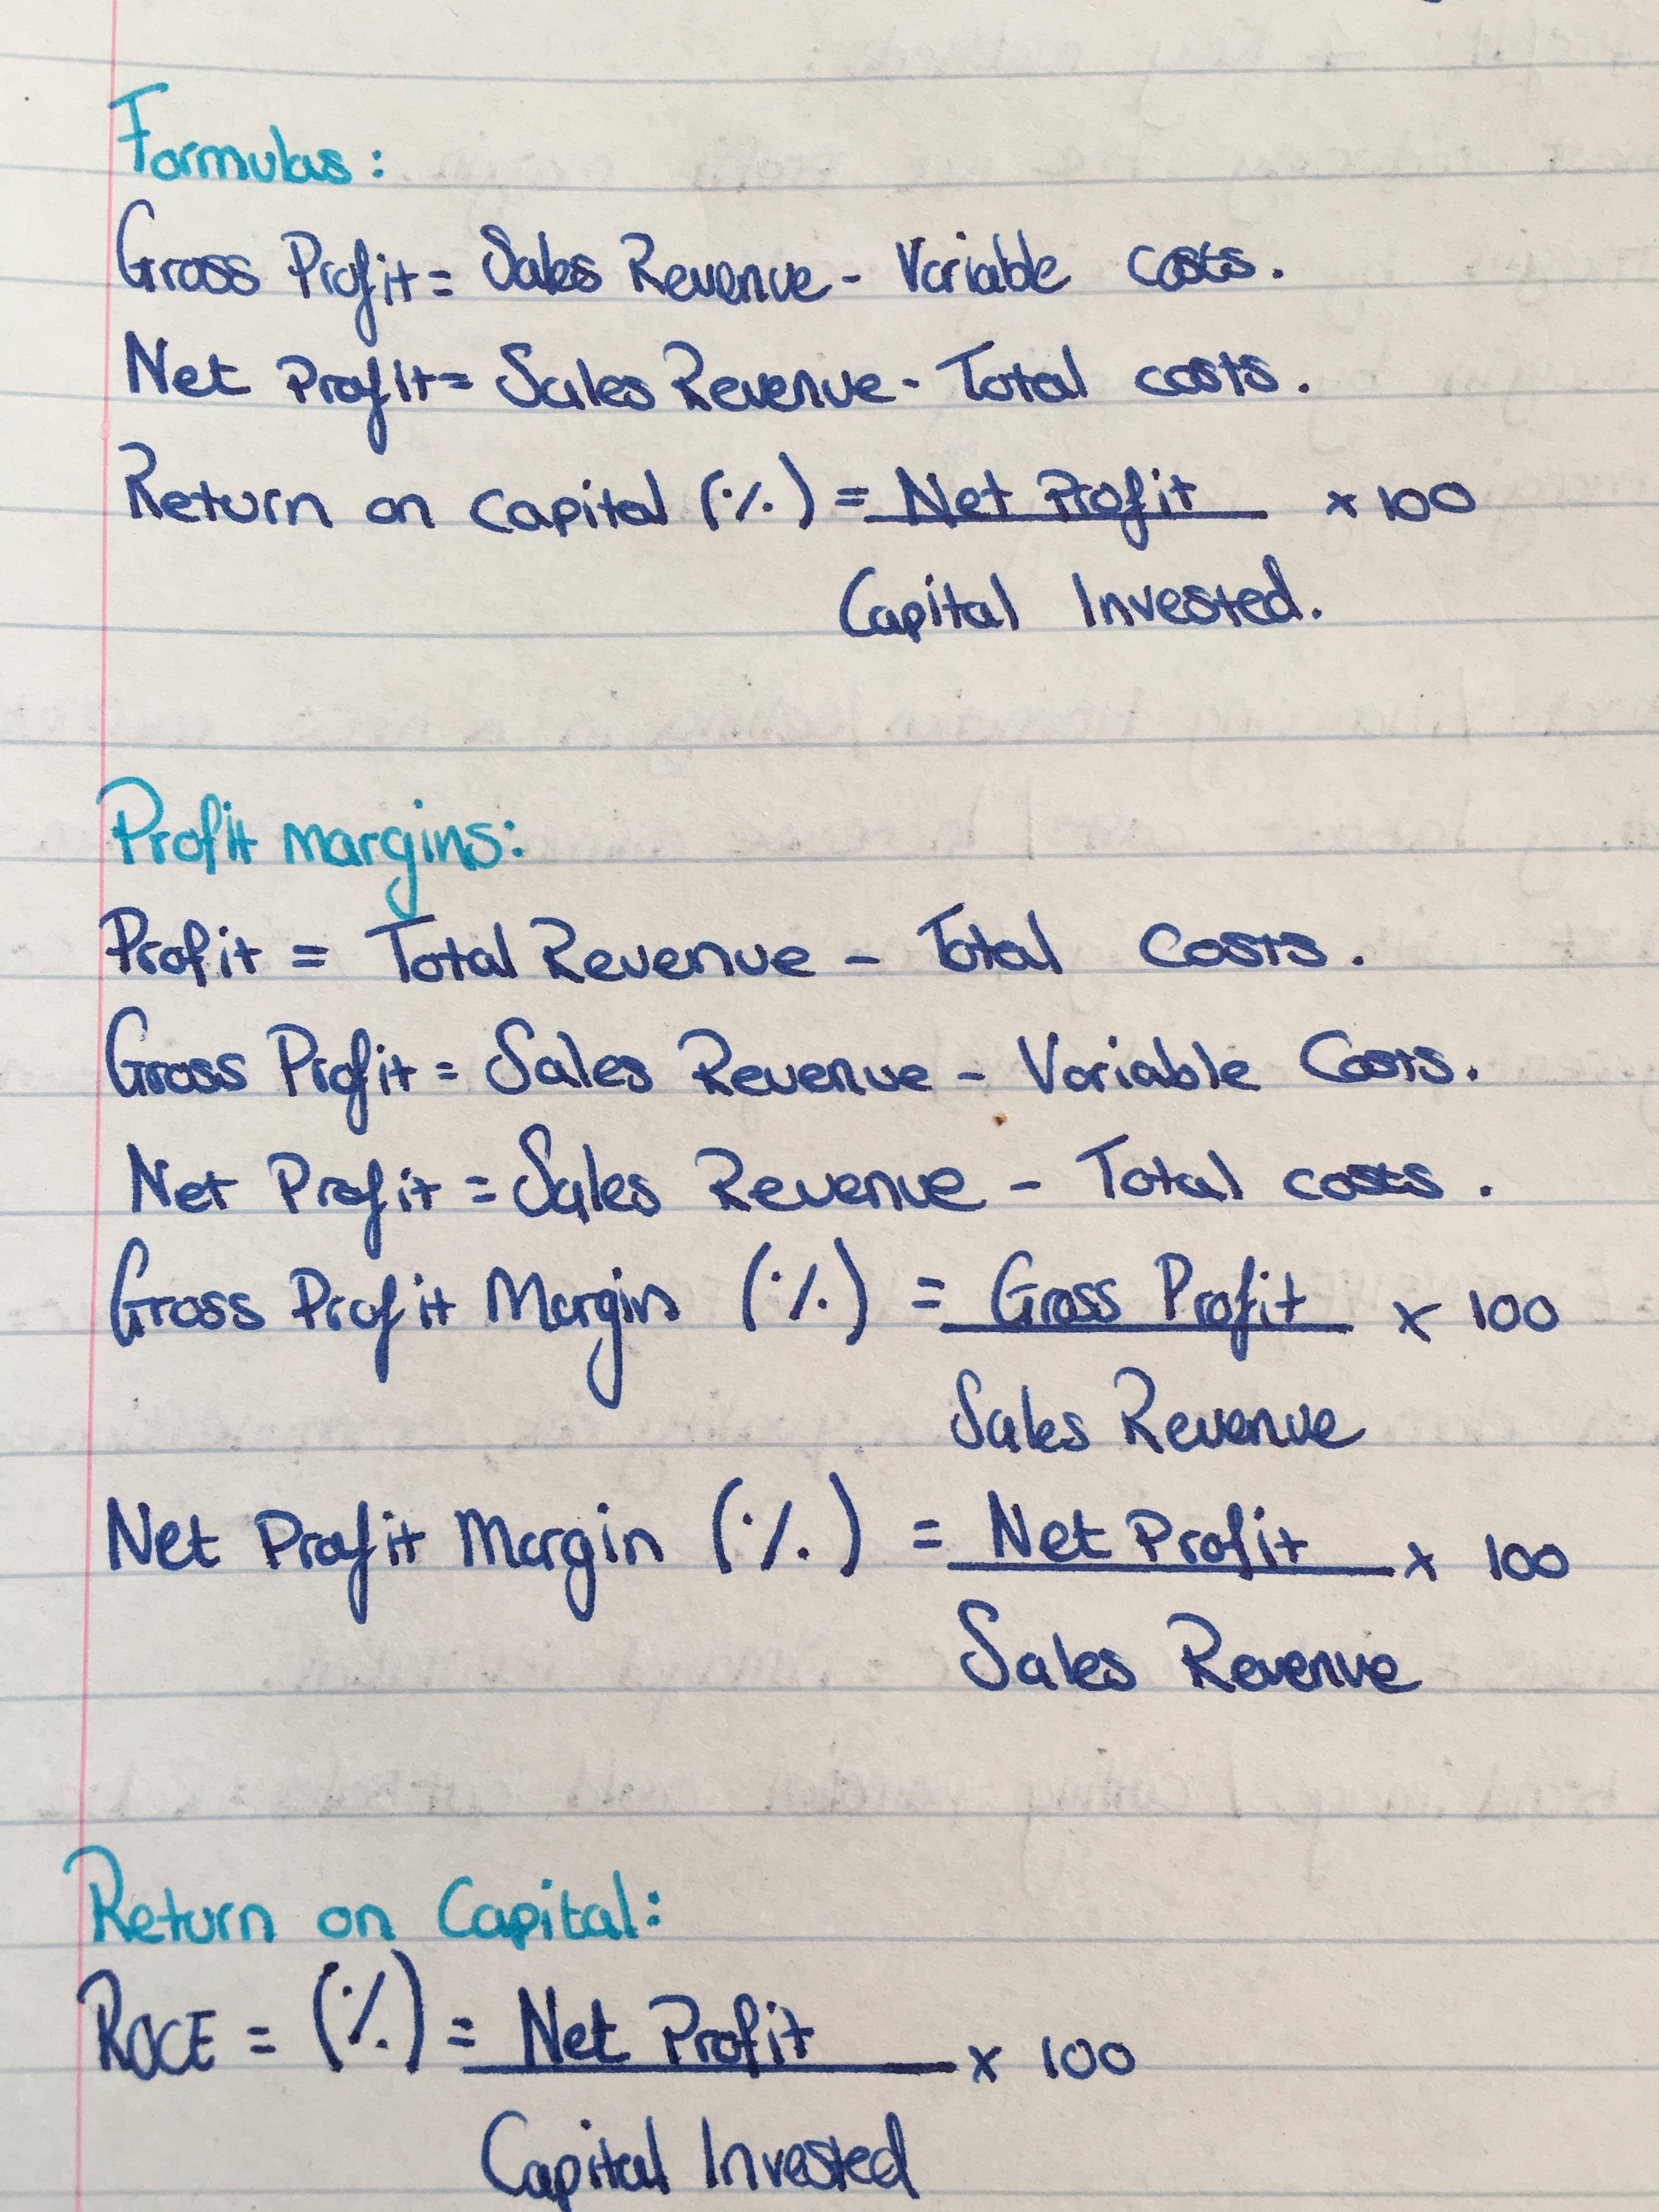 Formulas:
Gross Profit = Sales Revenue - Variable costs.
Net Profit = Sales Revenue - Total costs.
Return on capital (%) = Net Profit x 100
Capital Invested.
Profit margins:
Profit = Total Revenue - Total Costs.
Gross Profit = Sales Revenue - Variable Costs.
Net Profit = Sales Revenue - Total costs.
Gross Profit Margin (%) = Gross Profit x 100
Sales Revenue
Net Profit Margin (%) = Net Profit x 100
Sales Revenue
Return on Capital:
ROCE = (%) = Net Profit x 100
Capital Invested